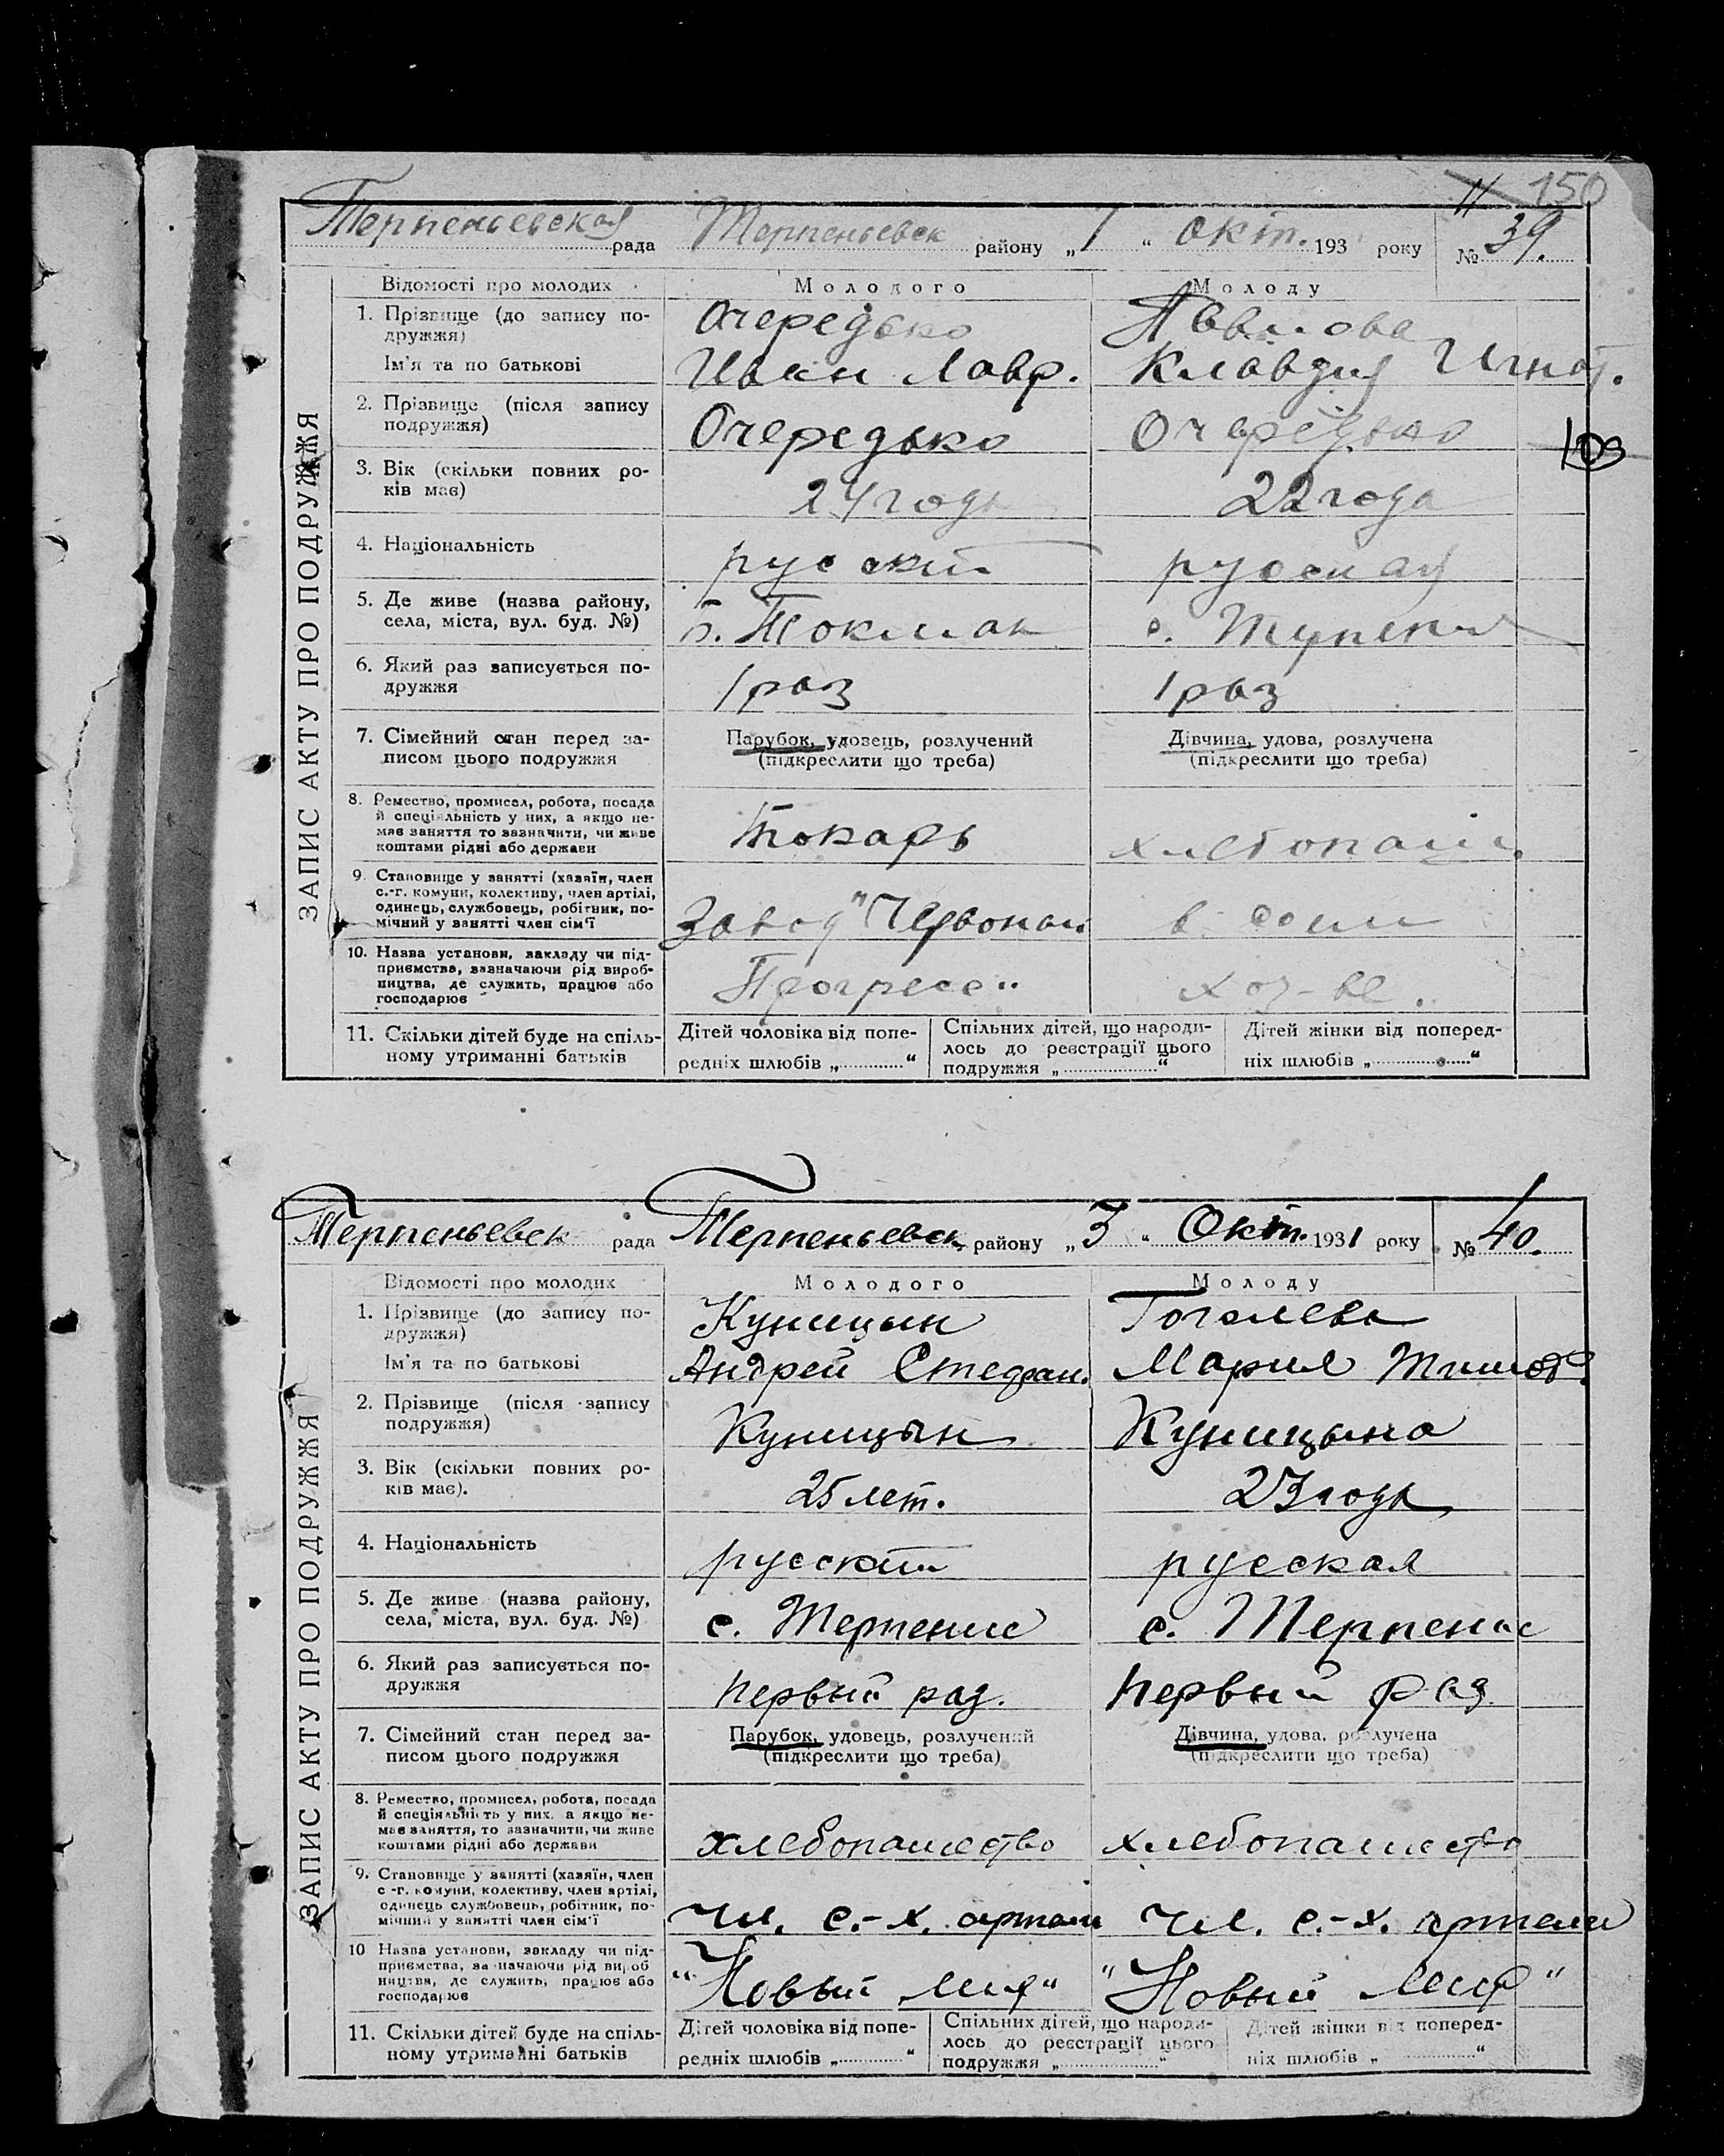 11 150
Терпеньевская рада Терпеньевск району „1“ окт. 193 року № 39.
ЗАПИС АКТУ ПРО ПОДРУЖЖЯ
Відомості про молодих Молодого Молоду
1. Прізвище (до запису по-
дружжя) Очередько
Ім'я та по батькові Иван Лавр. Клавдия Игнат.
2. Прізвище (після запису
подружжя) Очередько Очередько
103
3. Вік (скільки повних ро-
ків має) 24 года 22 года
4. Національність русский русская
5. Де живе (назва району,
села, міста, вул. буд. №) Токмак с.
6. Який раз записується по-
дружжя 1 раз 1 раз
7. Сімейний стан перед за-
писом цього подружжя
Парубок, удовець, розлучений
(підкреслити що треба)
Дівчина, удова, розлучена
(підкреслити що треба)
8. Ремество, промисел, робота, посада
й спеціяльність у них, а якщо не-
має заняття то зазначити, чи живе
коштами рідні або держави
Токарь хлебопаш.
9. Становище у занятті (хазяїн, член
с.-г. комуни, колективу, член артілі,
одинець, службовець, робітник, по-
мічний у занятті член сім'ї
Завод "Червоный в своем
10. Назва установи, закладу чи під-
приємства, зазначаючи рід вироб-
ництва, де служить, працює або
господарює
Прогресс" хоз-ве.
11. Скільки дітей буде на спіль-
ному утриманні батьків
Дітей чоловіка від попе-
редніх шлюбів „ “
Спільних дітей, що народи-
лось до реєстрації цього
подружжя „ “
Дітей жінки від поперед-
ніх шлюбів „ “
Терпеньевск рада Терпеньевск району „3“ Окт. 1931 року № 40.
ЗАПИС АКТУ ПРО ПОДРУЖЖЯ
Відомості про молодих Молодого Молоду
1. Прізвище (до запису по-
дружжя) Куницын Гоголева
Ім'я та по батькові Андрей Стефан. Мария Тимоф.
2. Прізвище (після запису
подружжя) Куницын Куницына
3. Вік (скільки повних ро-
ків має). 25 лет. 23 года
4. Національність русский русская
5. Де живе (назва району,
села, міста, вул. буд. №) с. Терпение с. Терпение
6. Який раз записується по-
дружжя первый раз. первый раз
7. Сімейний стан перед за-
писом цього подружжя
Парубок, удовець, розлучений
(підкреслити що треба)
Дівчина, удова, розлучена
(підкреслити що треба)
8. Ремество, промисел, робота, посада
й спеціяльність у них, а якщо не-
має заняття, то зазначити, чи живе
коштами рідні або держави
хлебопашество хлебопашество
9. Становище у занятті (хазяїн, член
с.-г. комуни, колективу, член артілі,
одинець службовець, робітник, по-
мічний у занятті член сім'ї
чл. с.-х. артели чл. с.-х. артели
10 Назва установи, закладу чи під-
приємства, зазначаючи рід вироб
ництва, де служить, працює або
господарює
"Новый Мир" "Новый Мир"
11. Скільки дітей буде на спіль-
ному утриманні батьків
Дітей чоловіка від попе-
редніх шлюбів „ “
Спільних дітей, що народи-
лось до реєстрації цього
подружжя „ “
Дітей жінки від поперед-
ніх шлюбів „ “